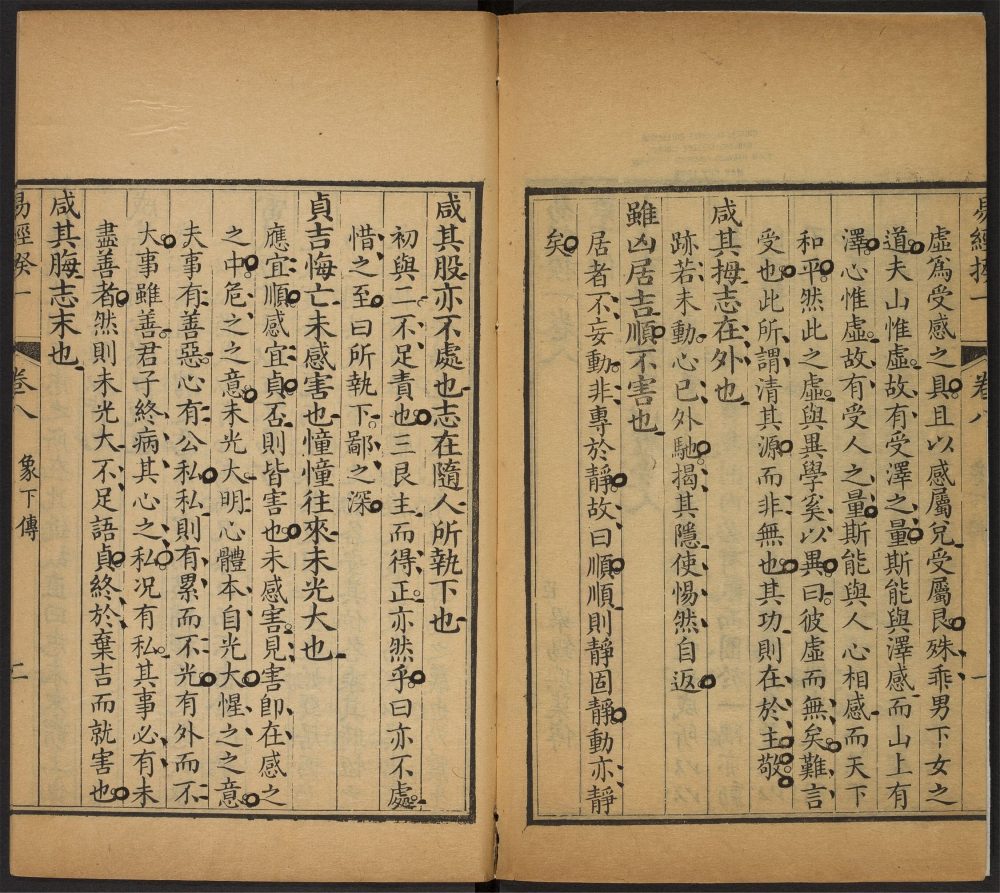 易經揆一
卷八
一
虛爲受感之具且以感屬兌受屬艮殊乖男下女之
道夫山惟虛故有受澤之量斯能與澤感而山上有
澤心惟虛故有受人之量斯能與人心相感而天下
和平然此之虛與異學奚以異曰彼虛而無矣難言
受也此所謂清其源而非無也其功則在於主敬
咸其拇志在外也
跡若未動心已外馳揭其隱使惕然自返
雖凶居吉順不害也
居者不妄動非專於靜故曰順順則靜固靜動亦靜
矣
咸其股亦不處也志在隨人所執下也
初與二不足責也三艮主而得正亦然乎曰亦不處
惜之至曰所執下鄙之深
貞吉悔亡未感害也憧憧往來未光大也
應宜順感宜貞否則皆害也未感害見害卽在感之
之中危之之意未光大明心體本自光大惺之之意
夫事有善惡心有公私私則有累而不光有外而不
大事雖善君子終病其心之私况有私其事必有未
盡善者然則未光大不足語貞終於棄吉而就害也
咸其脢志末也
易經揆一
卷八
象下傳
二